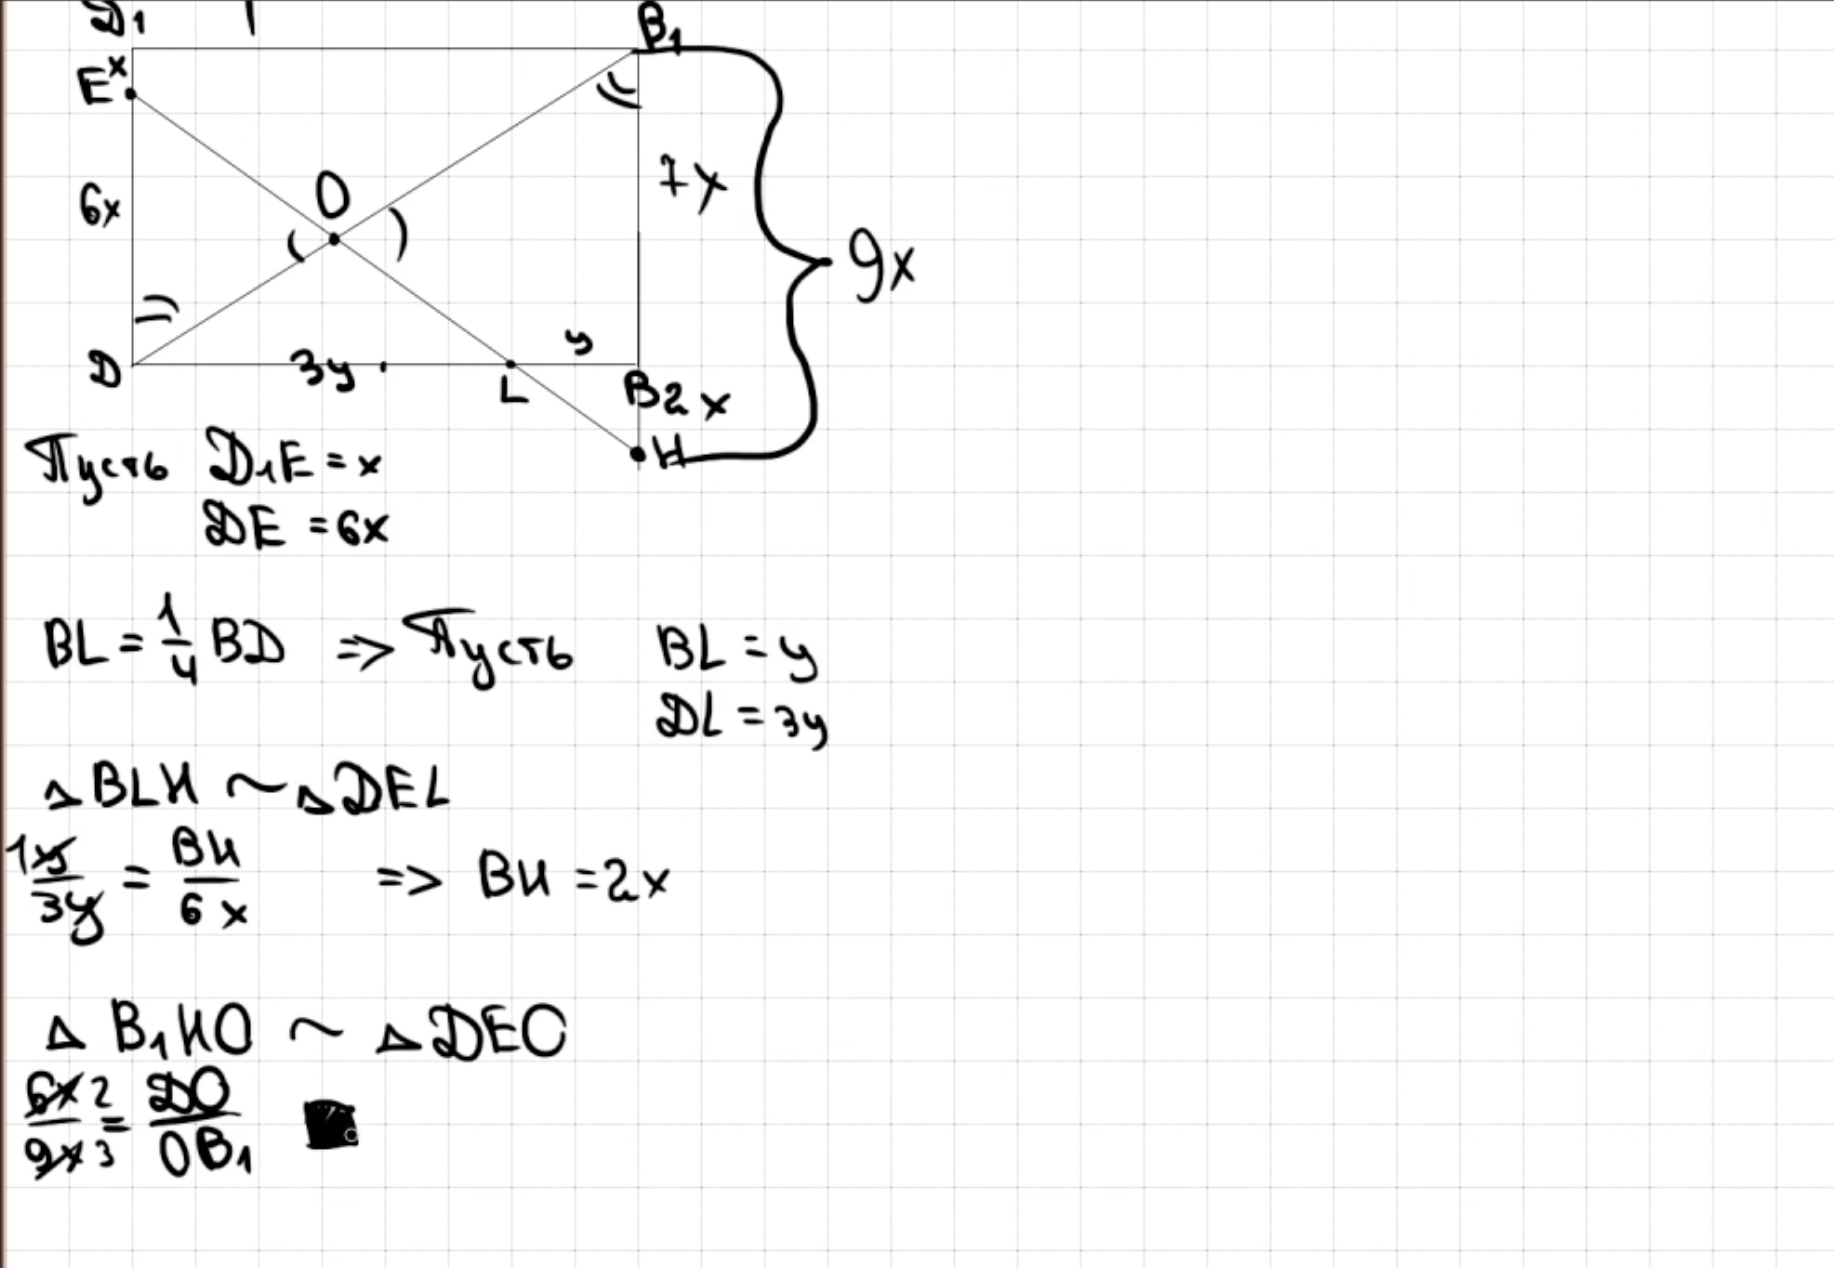 D₁ B₁
E x
O
6x 7x
9x
D 3y L y B 2x
H
Пусть D₁E = x
DE = 6x
BL = 1/4 BD => Пусть BL = y
DL = 3y
△BLH ~ △DEL
1y/3y = BH/6x => BH = 2x
△ B₁HO ~ △DEO
6x 2/9x 3 = DO/OB₁